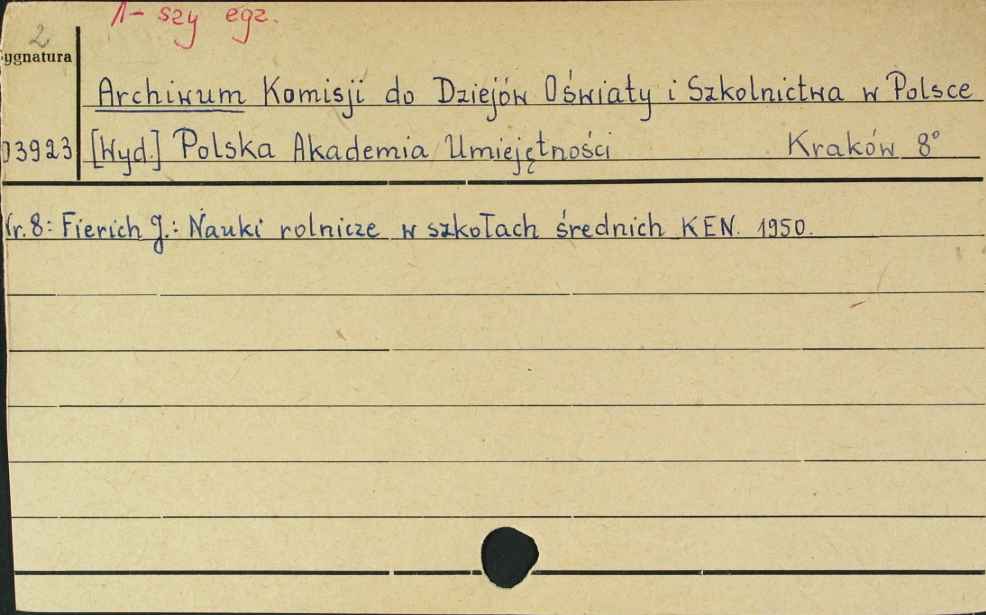 1-szy egz.
2
ygnatura
Archiwum Komisji do Dziejów Oświaty i Szkolnictwa w Polsce
03923 [Wyd.] Polska Akademia Umiejętności Kraków 8°
Nr. 8: Fierich J.: Nauki rolnicze w szkołach średnich KEN. 1950.